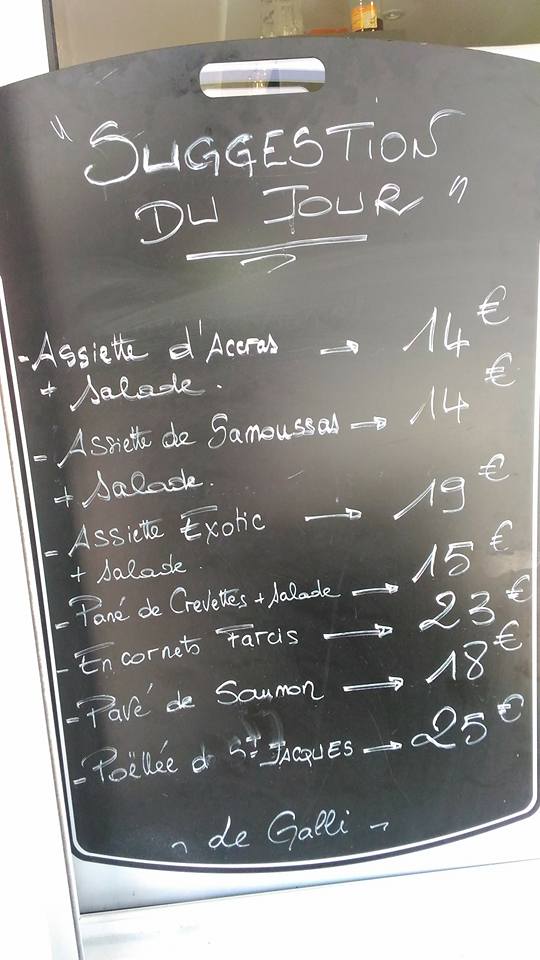 "SUGGESTION
DU JOUR"
- Assiette d'Accras → 14 €
+ Salade.
- Assiette de Samoussas → 14 €
+ Salade.
- Assiette Exotic → 19 €
+ Salade.
- Pané de Crevettes + Salade → 15 €
- Encornets Farcis → 23 €
- Pavé de Saumon → 18 €
- Poëllée d St JACQUES → 25 €
~ de Galli ~